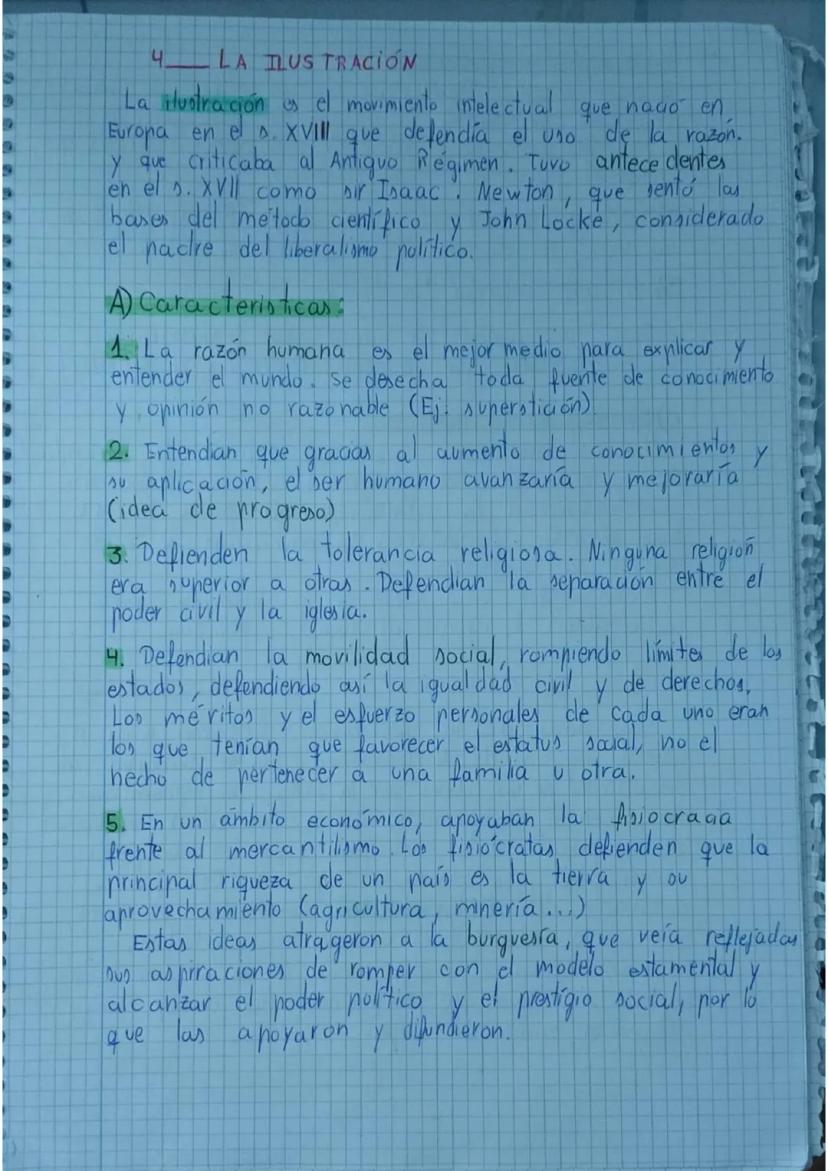 4___ LA ILUSTRACIÓN
La ilustración es el movimiento intelectual que nació en
Europa en el s. XVIII que defendía el uso de la razón.
y que criticaba al Antiguo Régimen. Tuvo antecedentes
en el s. XVII como sir Isaac. Newton, que sentó las
bases del metodo científico y John Locke, considerado
el padre del liberalismo político.
A) Caracteristicas:
1. La razón humana es el mejor medio para explicar y
entender el mundo. Se desecha toda fuente de conocimiento
y opinión no razonable (Ej: superstición)
2. Entendian que gracias al aumento de conocimientos y
su aplicación, el ser humano avanzaría y mejoraría
(idea de progreso)
3. Defienden la tolerancia religiosa. Ninguna religión
era superior a otras. Defendian la separación entre el
poder civil y la iglesia.
4. Defendian la movilidad social, rompiendo límites de los
estados, defendiendo así la igualdad civil y de derechos.
Los méritos y el esfuerzo personales de cada uno eran
los que tenían que favorecer el estatus social, no el
hecho de pertenecer a una familia u otra.
5. En un ámbito económico, apoyaban la fisiocracia
frente al mercantilismo. Los fisiócratas defienden que la
principal riqueza de un país es la tierra y su
aprovechamiento (agricultura, minería...)
Estas ideas atrageron a la burguesía, que veía reflejadas
sus aspiraciones de romper con el modelo estamental y
alcanzar el poder político y el prestigio social, por lo
que las apoyaron y difundieron.